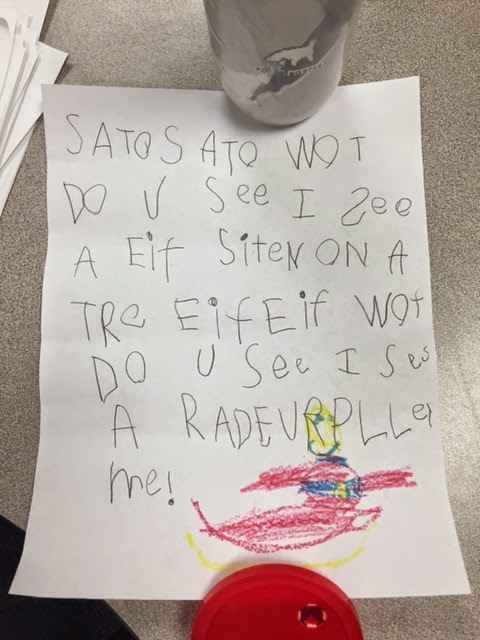 SATOS ATO WOT
DO U See I See
A Eif SiteN ON A
TRe EifEif WOt
DO U See I See
A RADEURPLLer
me!